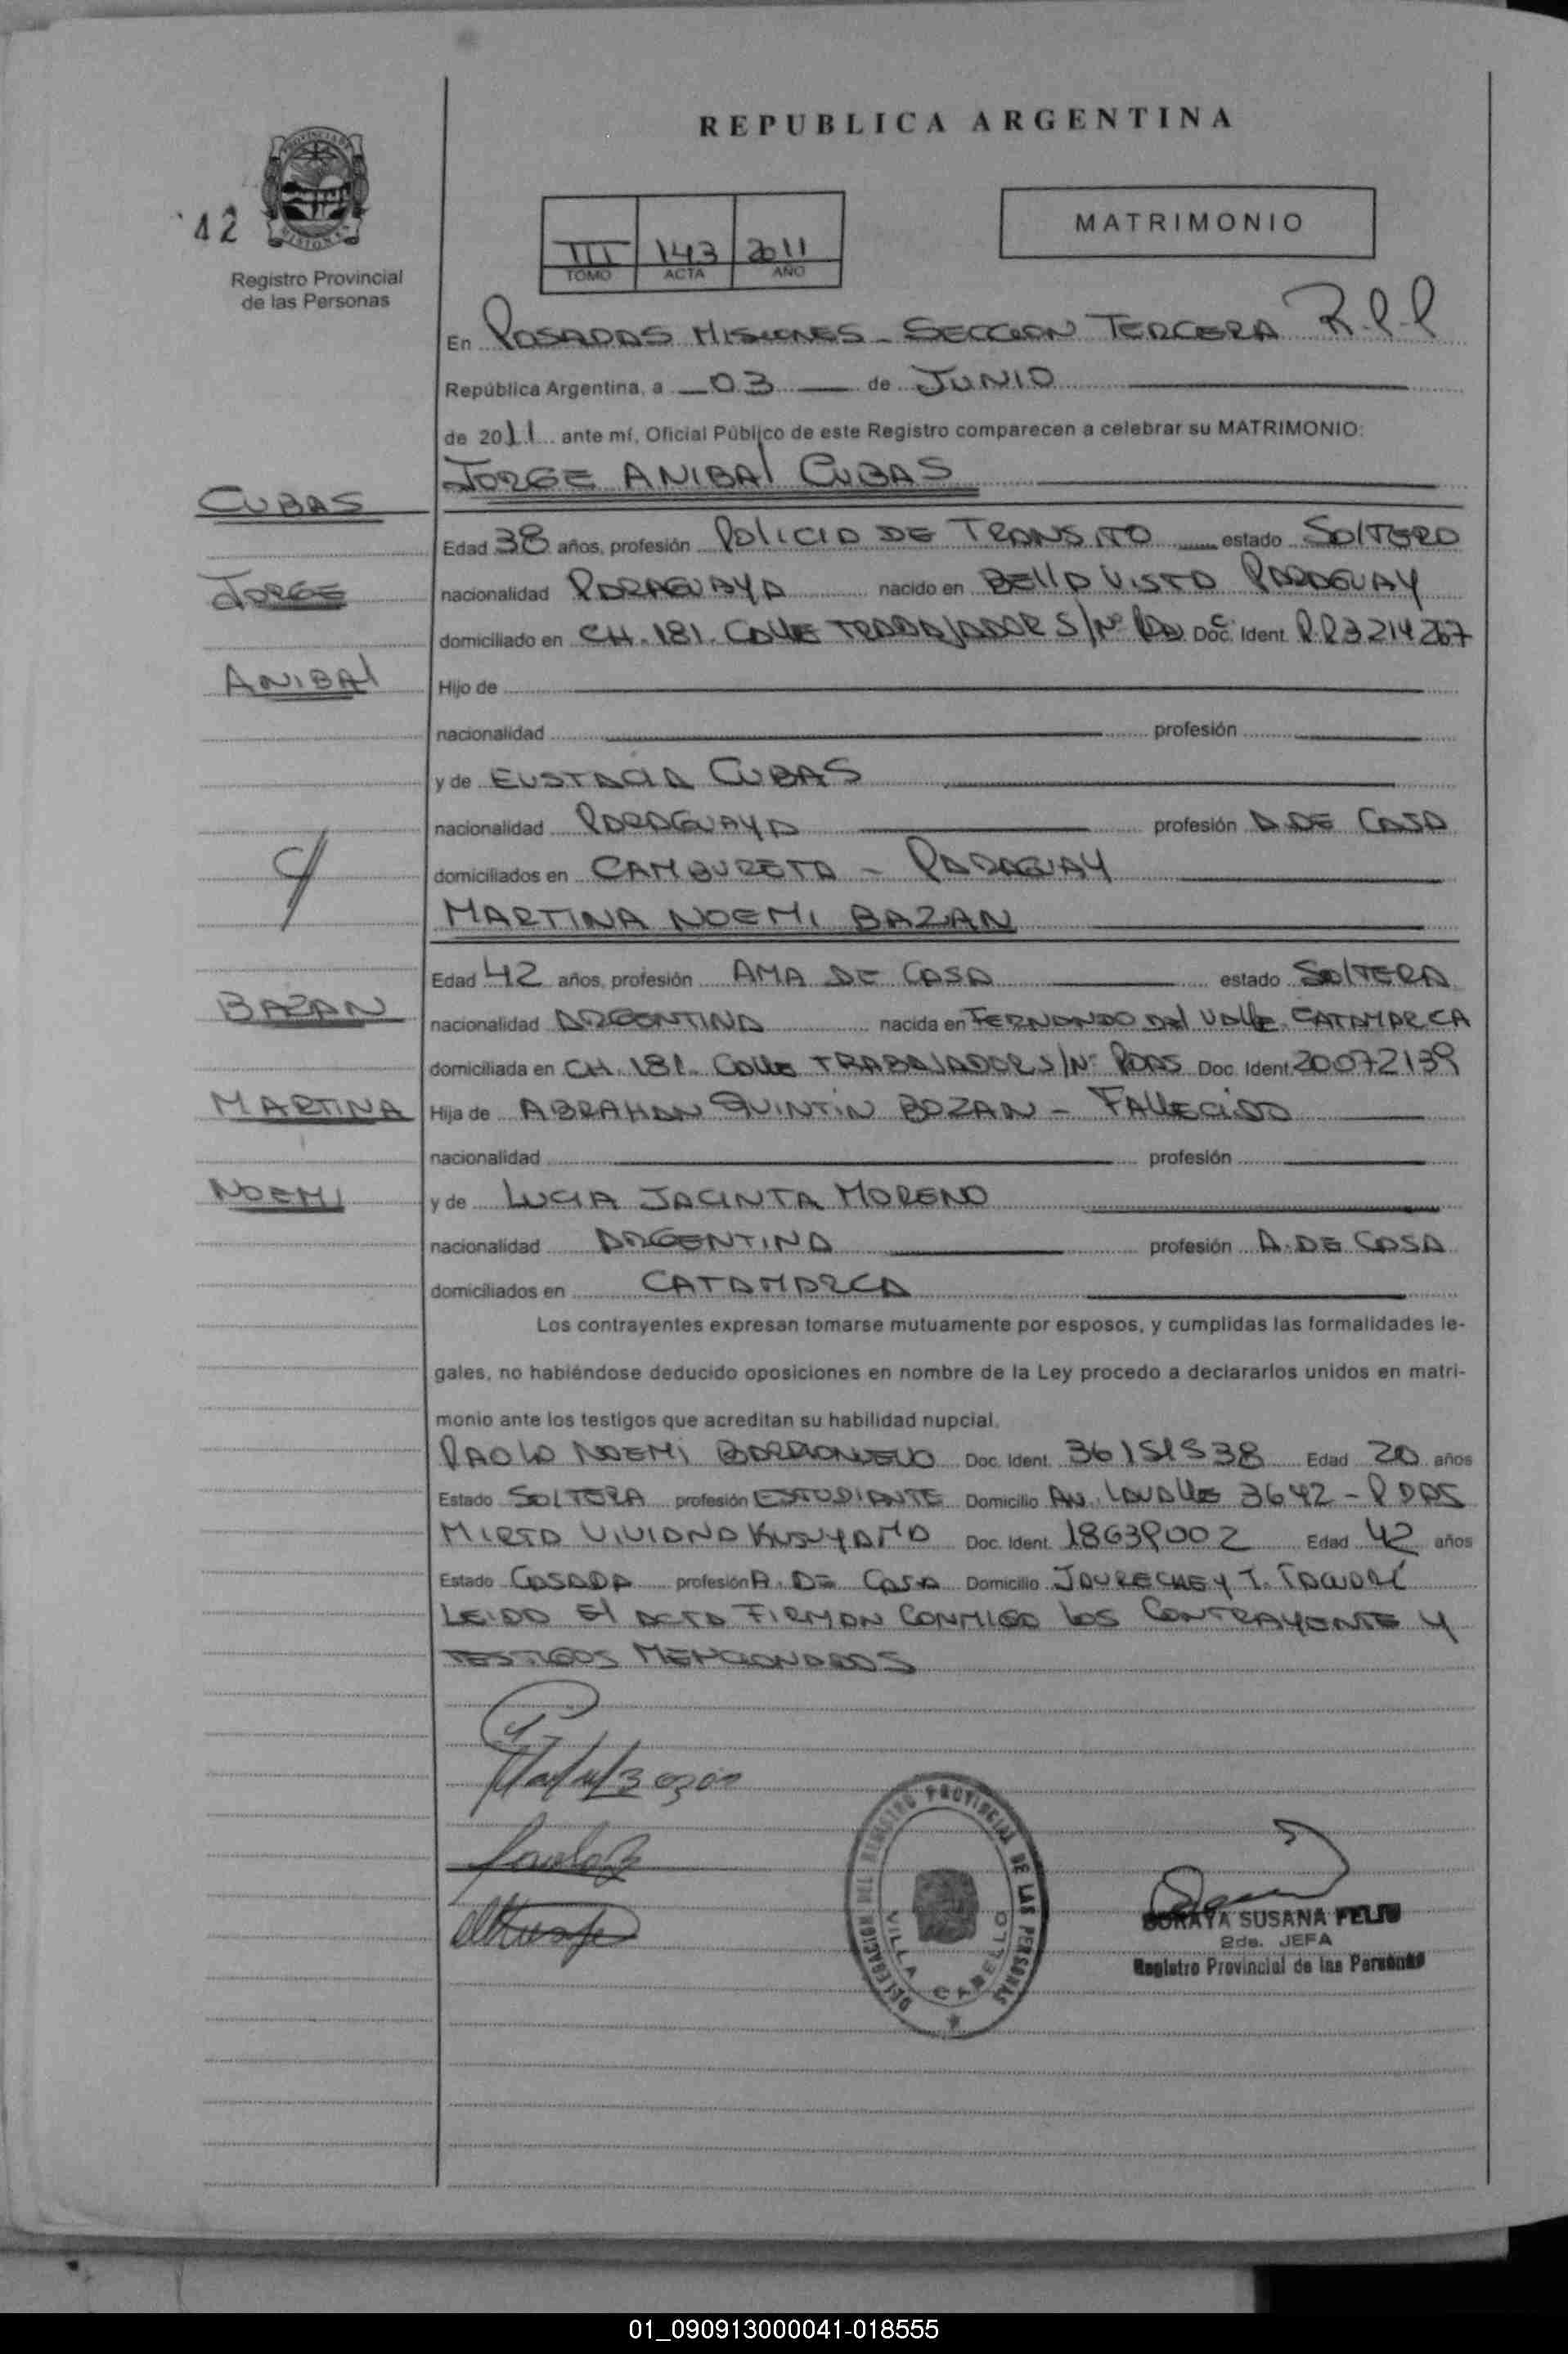 REPUBLICA ARGENTINA
PROVINCIA DE
MISIONES
42
Registro Provincial
de las Personas
III 143 2011
TOMO ACTA AÑO
MATRIMONIO
En POSADAS MISIONES - SECCION TERCERA R.P.P
República Argentina, a 03 de JUNIO
de 2011 ante mí, Oficial Público de este Registro comparecen a celebrar su MATRIMONIO:
JORGE ANIBAL CUBAS
CUBAS
Edad 38 años, profesión POLICIA DE TRANSITO estado SOLTERO
JORGE
nacionalidad PARAGUAYA nacido en BELLA VISTA PARAGUAY
domiciliado en CH. 181. CALLE TRABAJADOR S/Nº Doc. Ident. P.P 3214267
ANIBAL
Hijo de
nacionalidad profesión
y de EUSTACIA CUBAS
nacionalidad PARAGUAYA profesión A. DE CASA
domiciliados en CAMBURETA - PARAGUAY
MARTINA NOEMI BAZAN
Edad 42 años, profesión AMA DE CASA estado SOLTERA
BAZAN
nacionalidad ARGENTINA nacida en FERNANDO DEL VALLE. CATAMARCA
domiciliada en CH. 181. CALLE TRABAJADOR S/Nº PDAS Doc. Ident. 20072139
MARTINA
Hija de ABRAHAN QUINTIN BAZAN - FALLECIDO
nacionalidad profesión
NOEMI
y de LUCIA JACINTA MORENO
nacionalidad ARGENTINA profesión A. DE CASA
domiciliados en CATAMARCA
Los contrayentes expresan tomarse mutuamente por esposos, y cumplidas las formalidades le-
gales, no habiéndose deducido oposiciones en nombre de la Ley procedo a declararlos unidos en matri-
monio ante los testigos que acreditan su habilidad nupcial.
PAOLA NOEMI BARRIONUEVO Doc. Ident. 36151538 Edad 20 años
Estado SOLTERA profesión ESTUDIANTE Domicilio AV. LAVALLE 3642 - PDAS
MIRTA VIVIANA KUSUYAMA Doc. Ident. 18639002 Edad 42 años
Estado CASADA profesión A. DE CASA Domicilio JAURECHE Y T. TACUARÍ
LEIDA El ACTA FIRMAN CONMIGO LOS CONTRAYENTE Y
TESTIGOS MENCIONADOS
DELEGACION DEL REGISTRO PROVINCIAL DE LAS PERSONAS
VILLA CABELLO
SORAYA SUSANA FELIU
2da. JEFA
Registro Provincial de las Personas
01_090913000041-018555